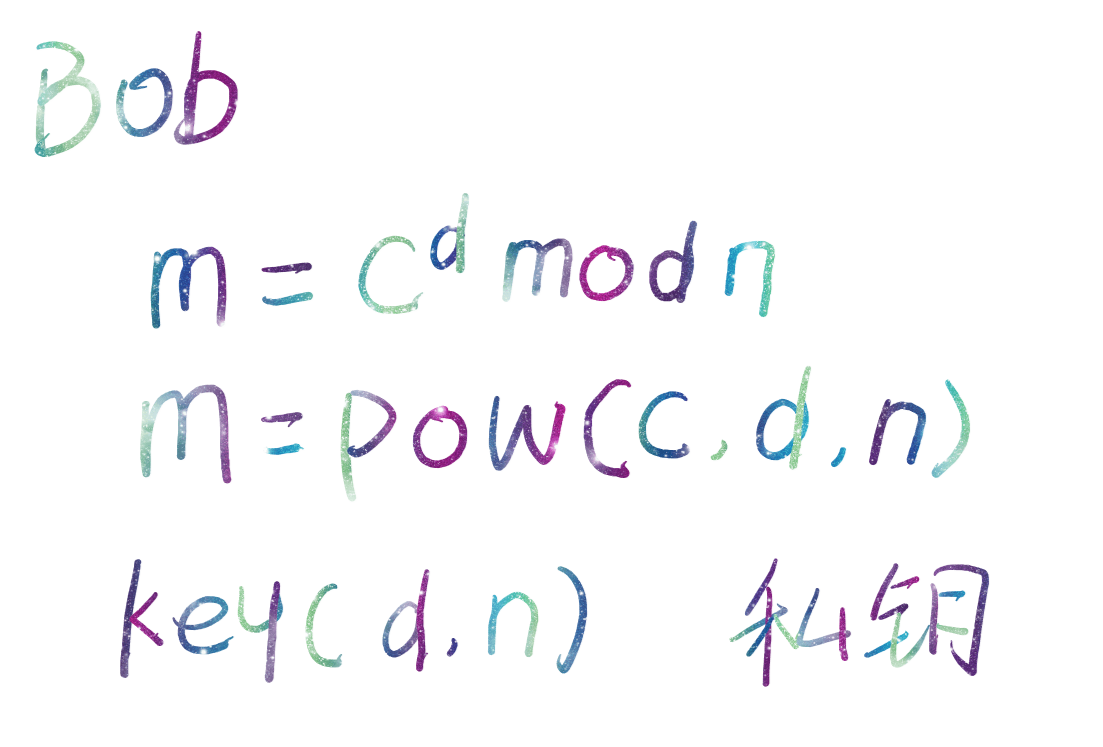 Bob
m = c^d mod n
m = pow(c,d,n)
key(d,n) 私钥